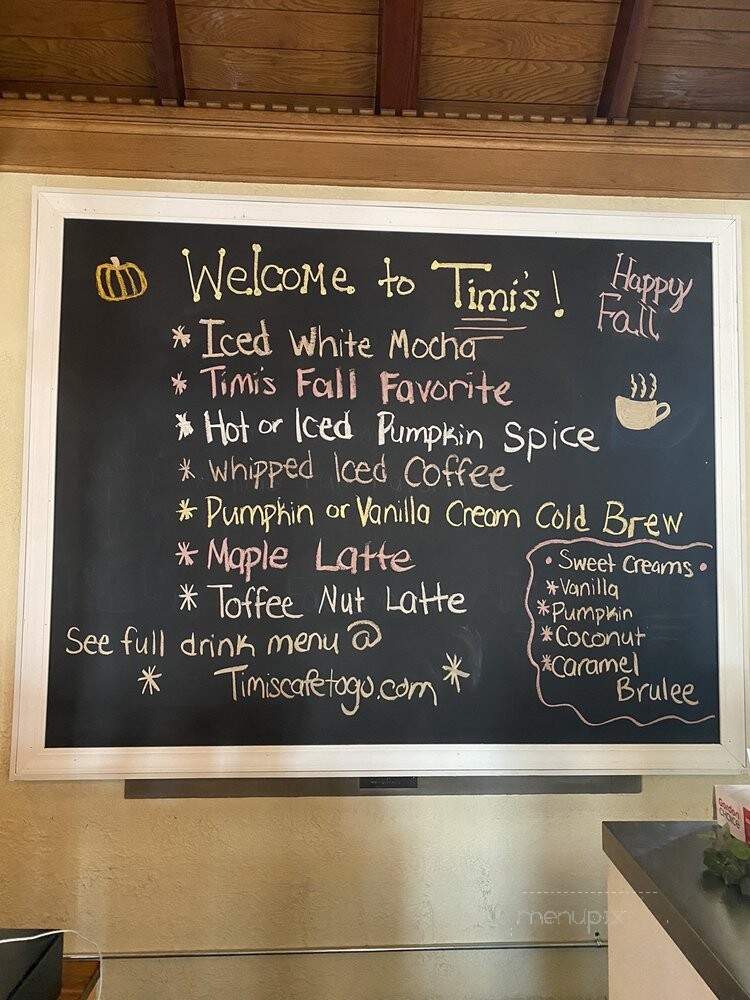 Welcome to Timi's!
Happy
Fall
* Iced White Mocha
* Timi's Fall Favorite
* Hot or Iced Pumpkin Spice
* Whipped Iced Coffee
* Pumpkin or Vanilla Cream Cold Brew
* Maple Latte
* Toffee Nut Latte
See full drink menu @
* Timiscafetogo.com *
• Sweet Creams •
* Vanilla
* Pumpkin
* Coconut
* Caramel
Brulee
Gordon
CHOICE
menupix